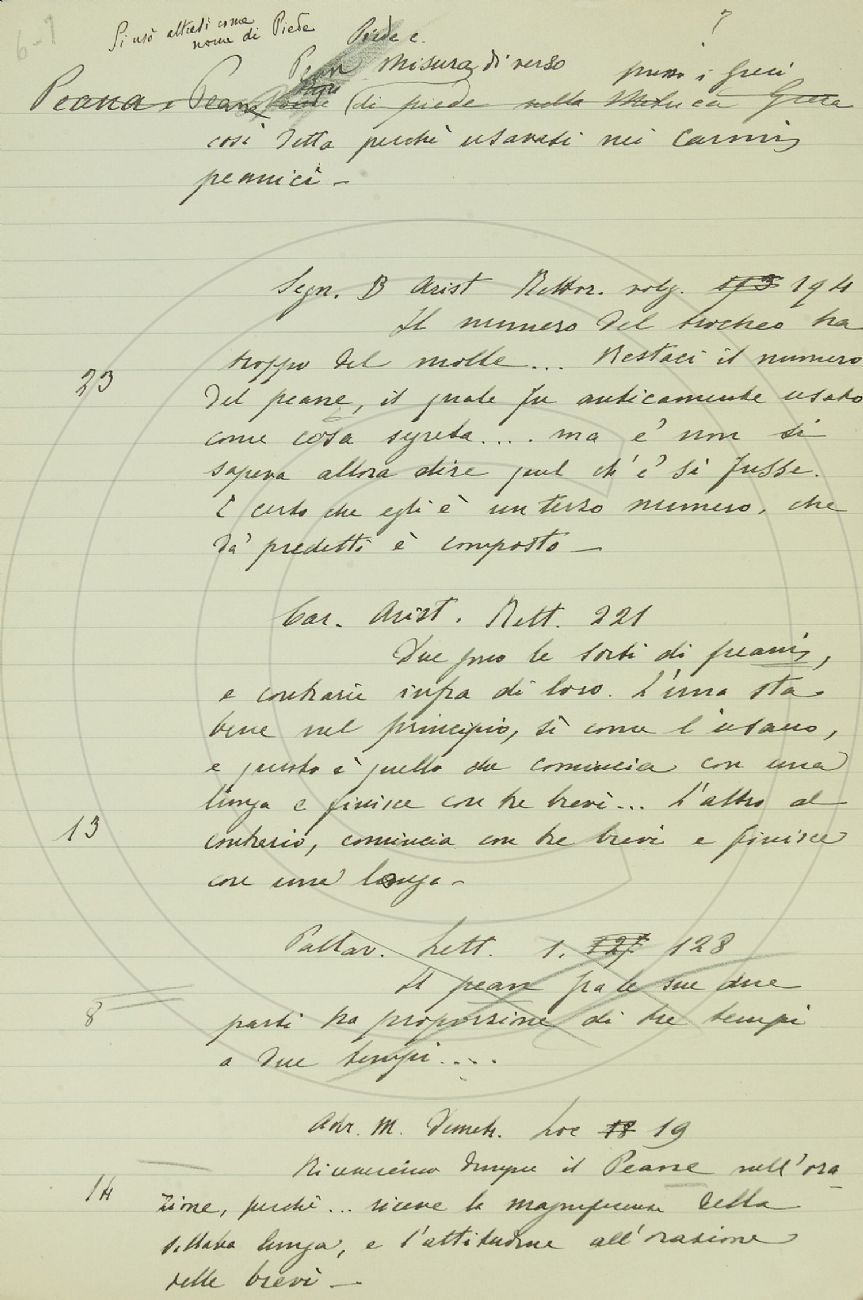 6-7
Si usò altresì come
nome di Piede
Piede e.
?
Pean misura di verso presso i Greci
Peana e Peane (di piede nella Metrica Greca
così detta perchè usavasi nei Carmi
peanici –
Segn. B Arist Rettor. volg. 193 194
Il numero del trocheo ha
troppo del molle... Restaci il numero
23
del peane, il quale fu anticamente usato
come cosa segreta.... ma e' non si
sapeva allora dire quel ch'e' si fusse.
È certo che egli è un terzo numero, che
da' predetti è composto –
Car. Arist. Rett. 221
Due pur le sorti di peani,
e contrarie infra di loro. L'una sta
bene nel principio, sì come l'usano,
e questo è quello che comincia con una
lunga e finisce con tre brevi... L'altro al
13
contrario, comincia con tre brevi e finisce
con una lunga –
Pallav. Lett. 1. 127 128
Il pean fra le sue due
8
parti ha proporzione di tre tempi
a due tempi....
Adr. M. Demetr. Loc 18 19
Riceveremo dunque il Peane nell'ora-
14
zione, perchè... riceve la magnificenza della
sillaba lunga, e l'attitudine all'orazione
delle brevi –